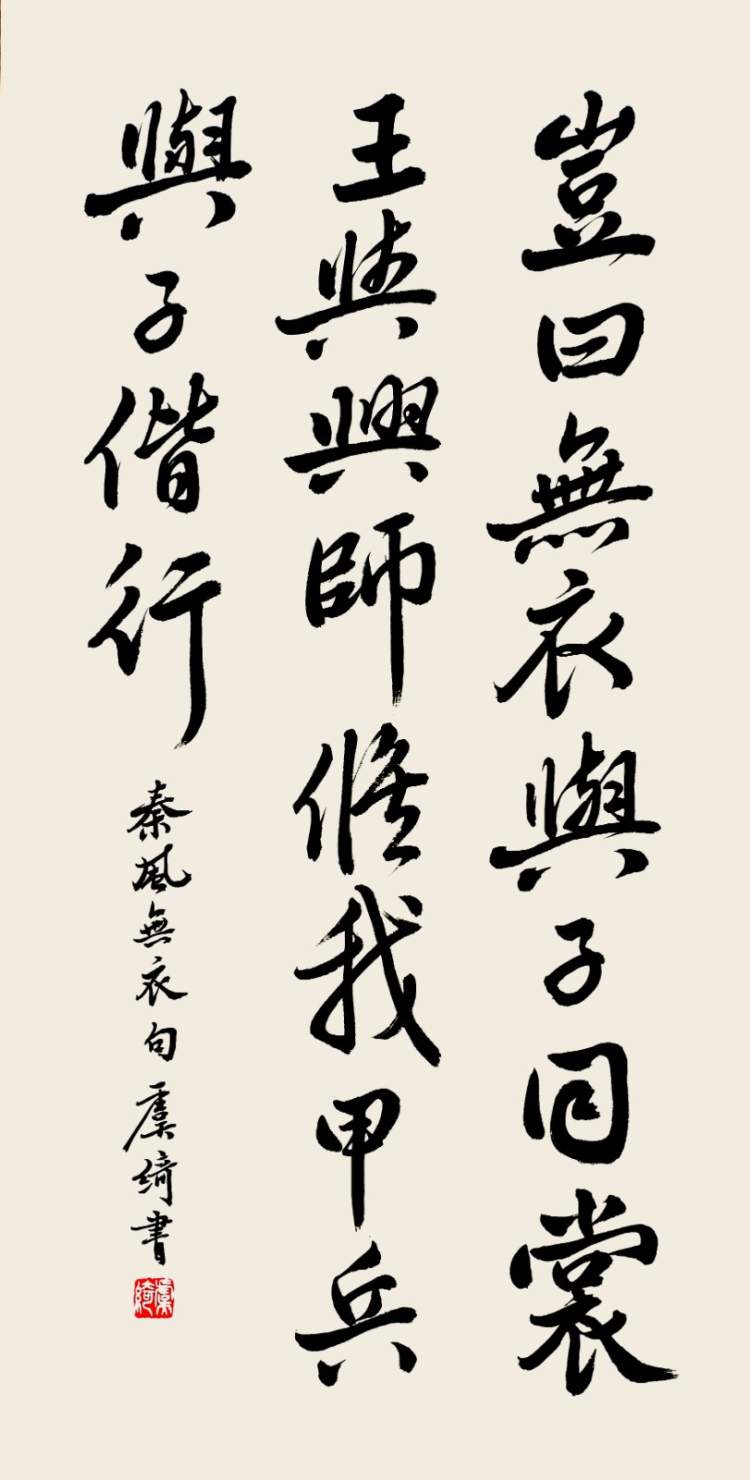 豈曰無衣與子同裳
王與興師脩我甲兵
與子偕行
秦風無衣句虞綺書
虞綺